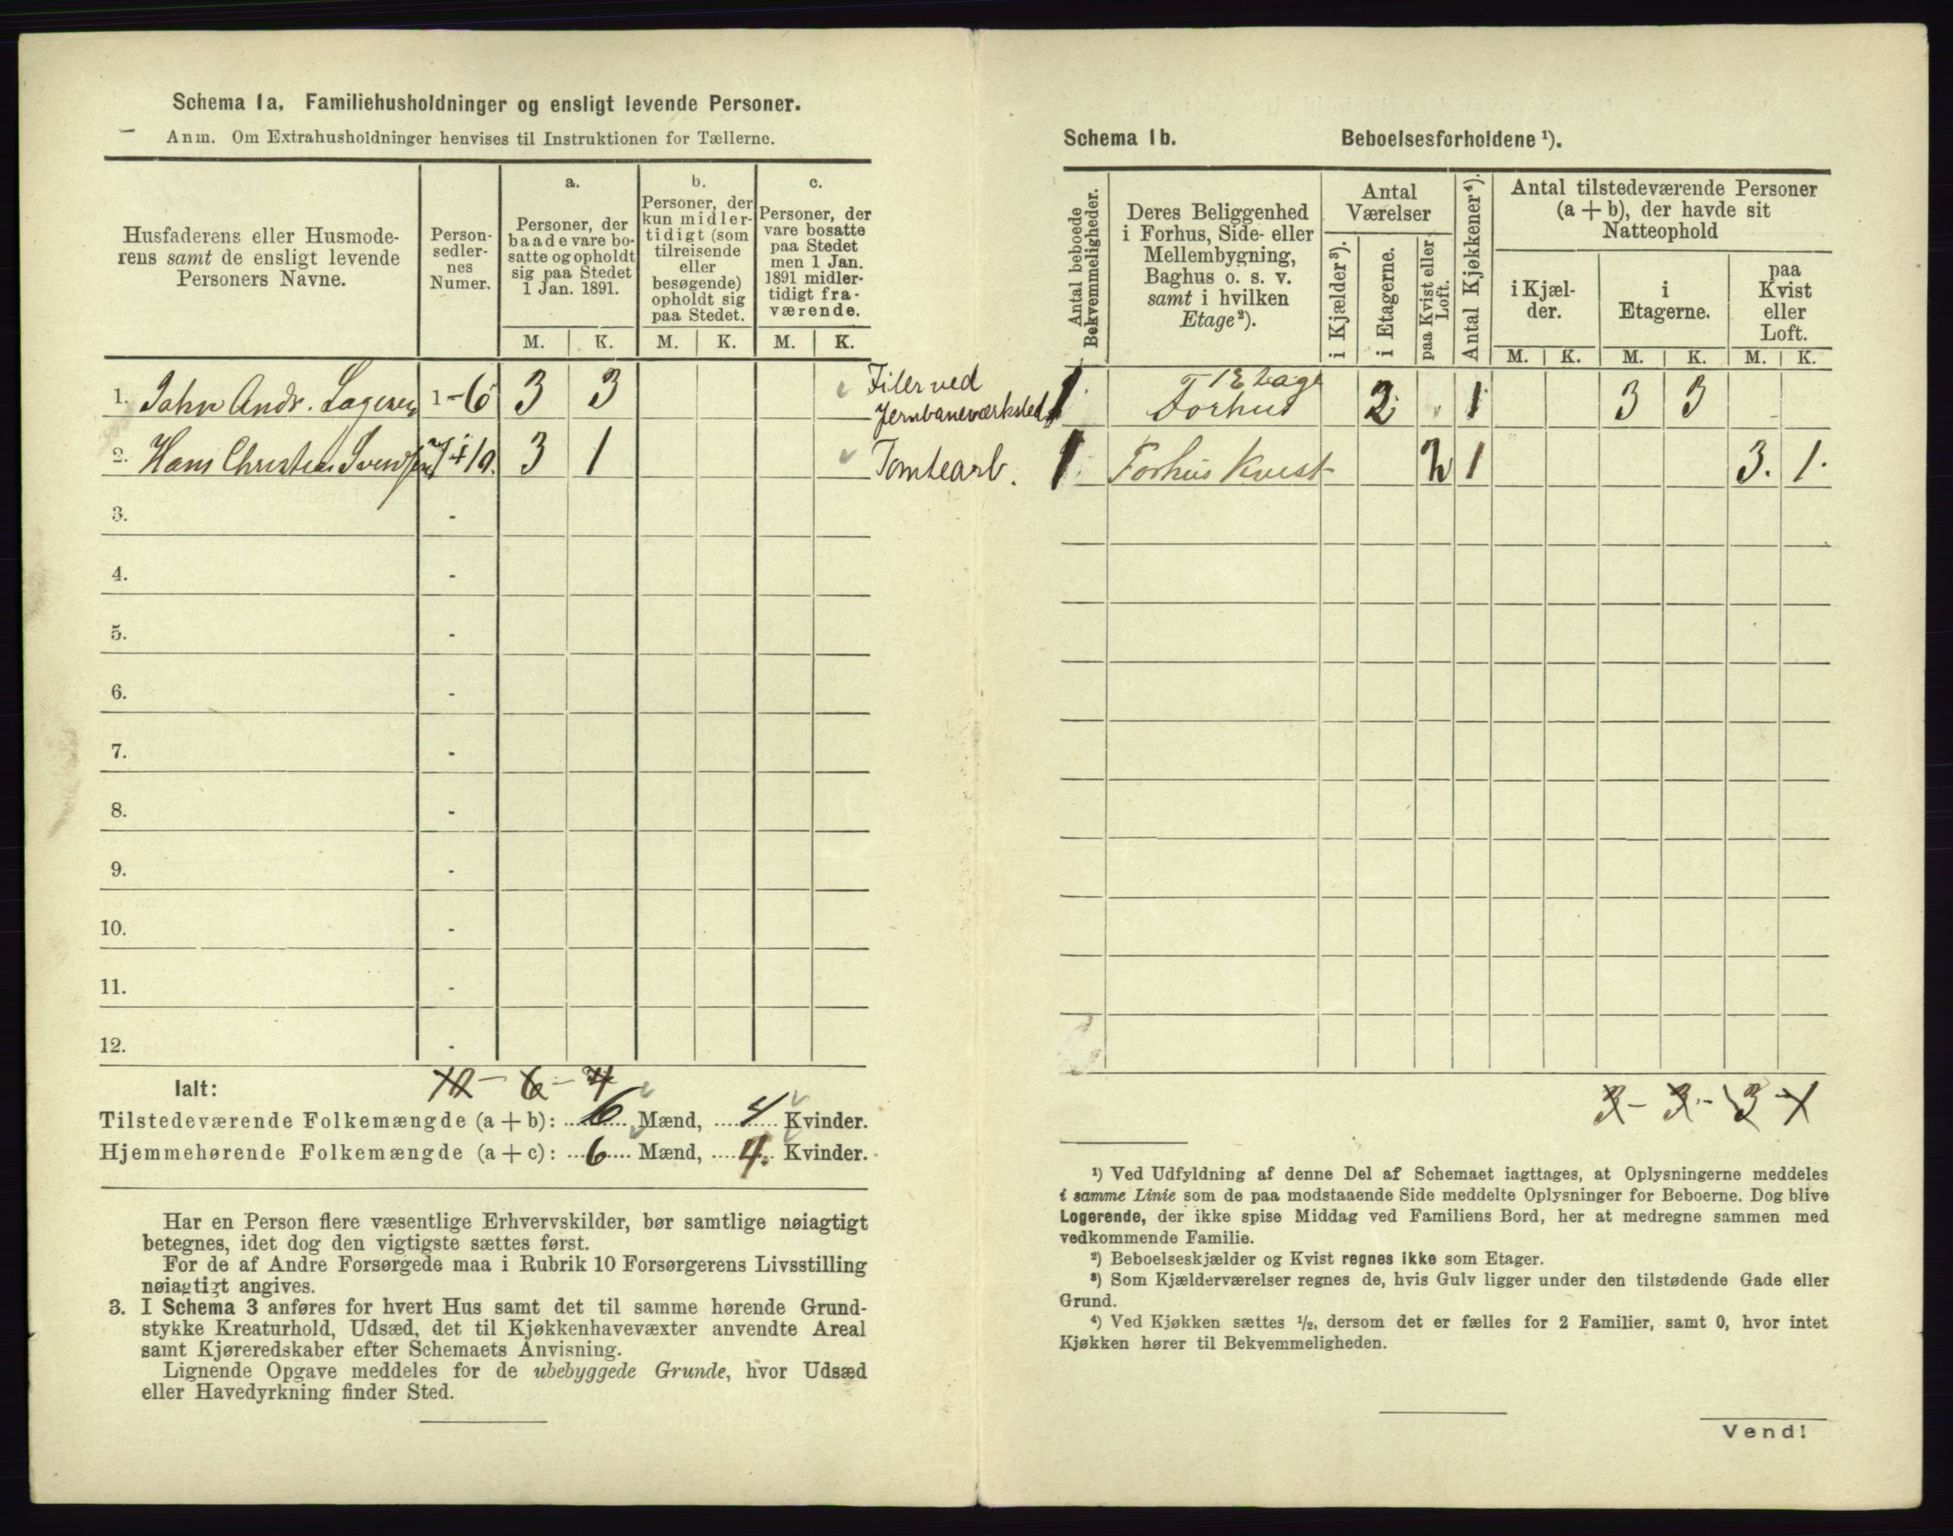 Schema 1a. Familiehusholdninger og ensligt levende Personer.
Anm. Om Extrahusholdninger henvises til Instruktionen for Tællerne.
Husfaderens eller Husmode-
rens samt de ensligt levende
Personers Navne.
Person-
sedler-
nes
Numer.
a.
Personer, der
baade vare bo-
satte og opholdt
sig paa Stedet
1 Jan. 1891.
b.
Personer, der
kun midler-
tidigt (som
tilreisende
eller
besøgende)
opholdt sig
paa Stedet.
c.
Personer, der
vare bosatte
paa Stedet
men 1 Jan.
1891 midler-
tidigt fra-
værende.
M. K. M. K. M. K.
1. John Andr. 1-6 3 3 Filer ved
Jernbaneværksted
2. Hans Christian Svendsen 7 10. 3 1 Tomtearb.
3. -
4. -
5. -
6. -
7. -
8. -
9. -
10. -
11. -
12. -
Ialt: 6 - 4
Tilstedeværende Folkemængde (a + b): 6 Mænd, 4 Kvinder.
Hjemmehørende Folkemængde (a + c): 6 Mænd, 4. Kvinder.
Har en Person flere væsentlige Erhvervskilder, bør samtlige nøiagtigt
betegnes, idet dog den vigtigste sættes først.
For de af Andre Forsørgede maa i Rubrik 10 Forsørgerens Livsstilling
nøiagtigt angives.
3. I Schema 3 anføres for hvert Hus samt det til samme hørende Grund-
stykke Kreaturhold, Udsæd, det til Kjøkkenhavevæxter anvendte Areal
samt Kjøreredskaber efter Schemaets Anvisning.
Lignende Opgave meddeles for de ubebyggede Grunde, hvor Udsæd
eller Havedyrkning finder Sted.
Schema 1b. Beboelsesforholdene ¹).
Antal beboede
Bekvemmeligheder.
Deres Beliggenhed
i Forhus, Side- eller
Mellembygning,
Baghus o. s. v.
samt i hvilken
Etage²).
Antal
Værelser
i Kjælder³).
i Etagerne.
paa Kvist eller
Loft.
Antal Kjøkkener⁴).
Antal tilstedeværende Personer
(a + b), der havde sit
Natteophold
i Kjæl-
der.
i
Etagerne.
paa
Kvist
eller
Loft.
M. K. M. K. M. K.
1. 1 Etage
Forhus 2 1 3 3
1. Forhus Kvist 2 1 3. 1.
3 - 3 - 3 - 1
¹) Ved Udfyldning af denne Del af Schemaet iagttages, at Oplysningerne meddeles
i samme Linie som de paa modstaaende Side meddelte Oplysninger for Beboerne. Dog blive
Logerende, der ikke spise Middag ved Familiens Bord, her at medregne sammen med
vedkommende Familie.
²) Beboelseskjælder og Kvist regnes ikke som Etager.
³) Som Kjælderværelser regnes de, hvis Gulv ligger under den tilstødende Gade eller
Grund.
⁴) Ved Kjøkken sættes ½, dersom det er fælles for 2 Familier, samt 0, hvor intet
Kjøkken hører til Bekvemmeligheden.
Vend!